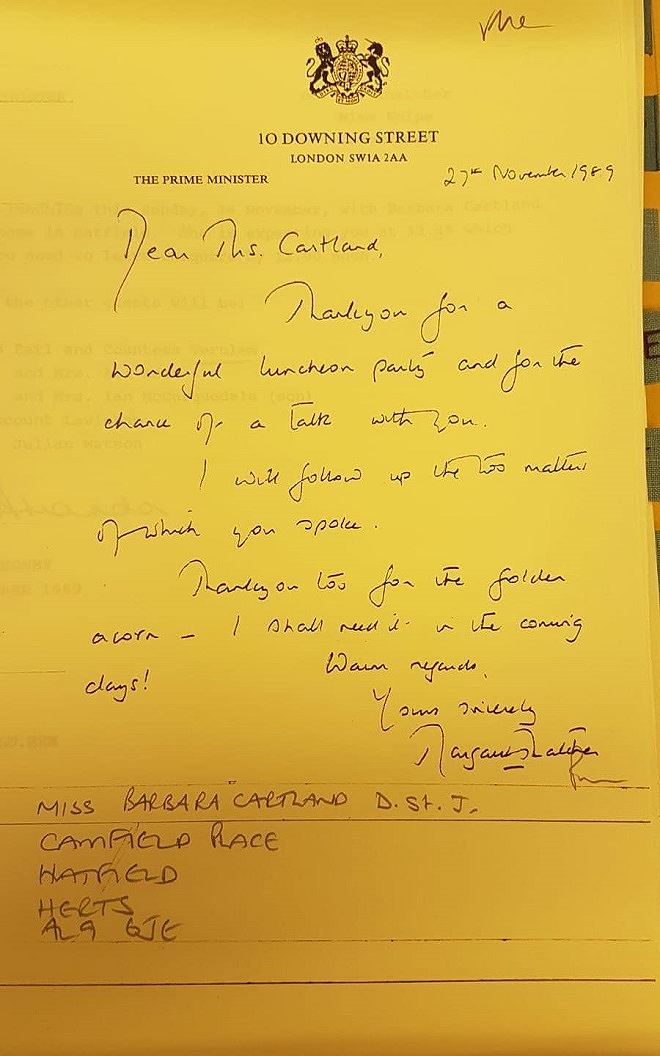 10 DOWNING STREET
LONDON SW1A 2AA
THE PRIME MINISTER
27th November 1989
Dear Ms. Cartland,
Thankyou for a
wonderful luncheon party and for the
chance of a talk with you.
I will follow up the two matters
of which you spoke.
Thankyou too for the golden
acorn - I shall need it in the coming
days!
Warm regards,
Yours sincerely
Margaret Thatcher
MISS BARBARA CARTLAND D.St.J.
CAMFIELD PLACE
HATFIELD
HERTS
AL9 6JE